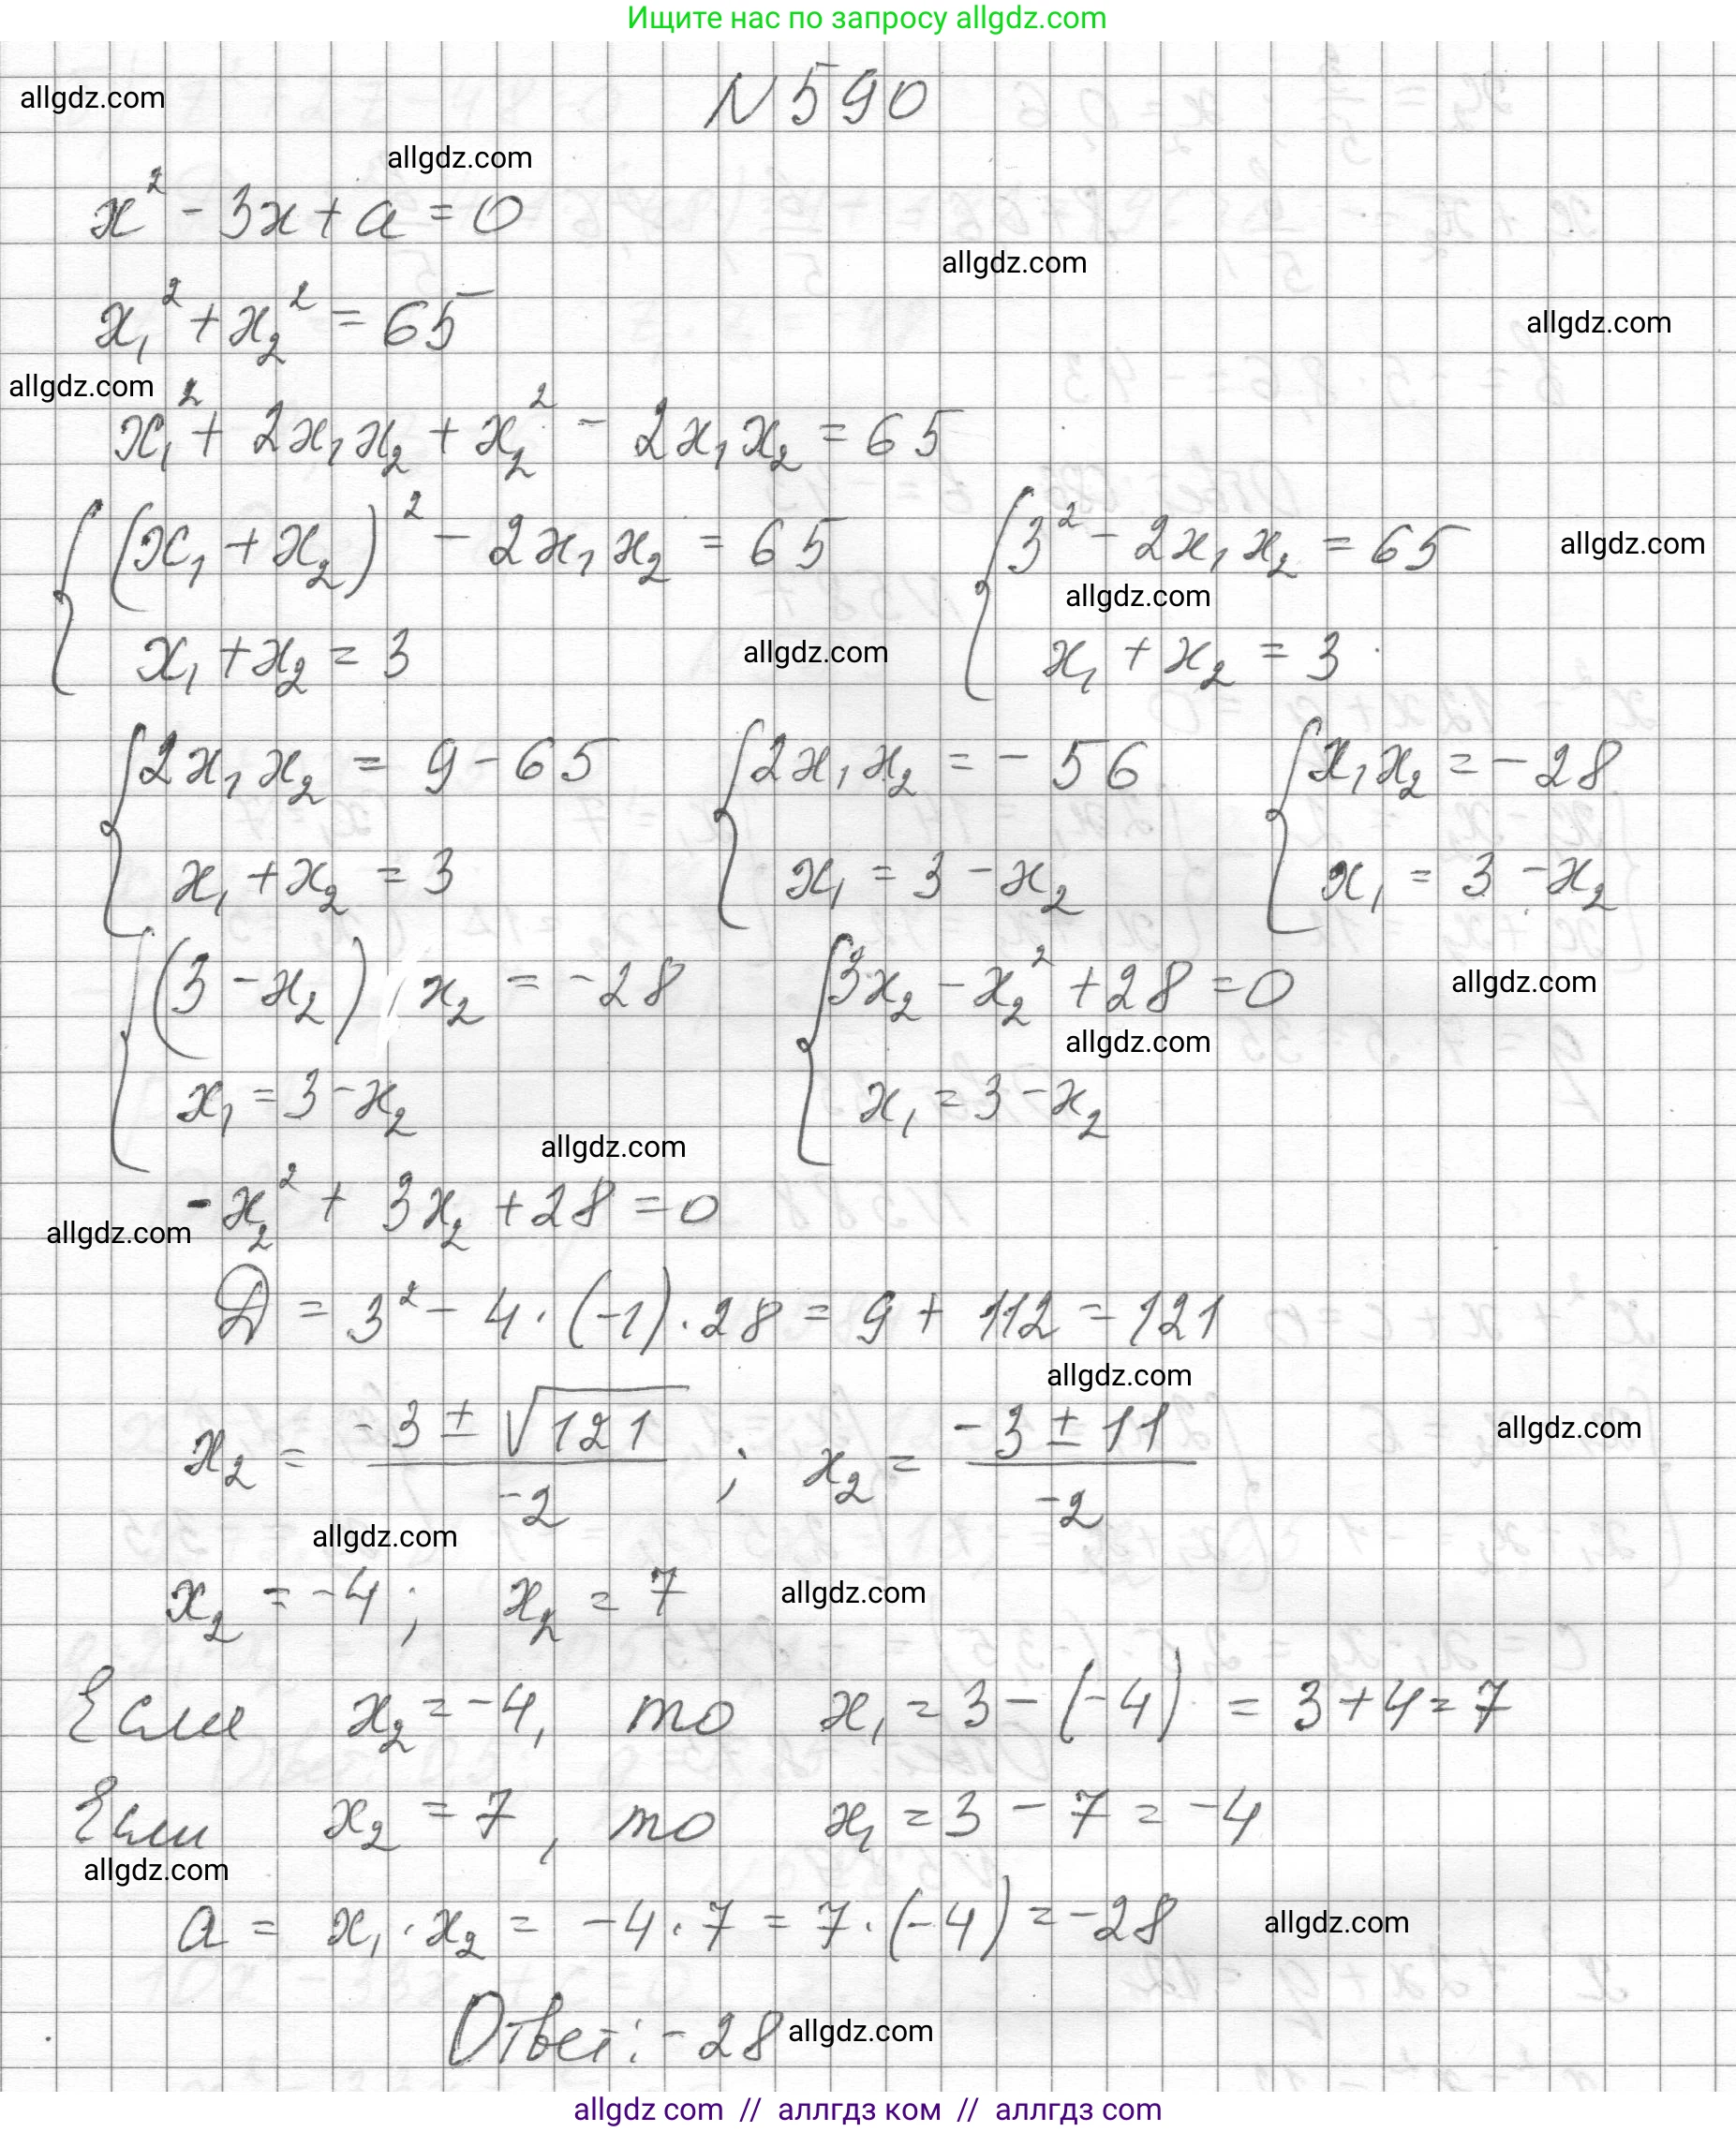 Ищите нас по запросу allgdz.com
allgdz.com
N 590
allgdz.com
x² - 3x + a = 0
allgdz.com
x₁² + x₂² = 65
allgdz.com
allgdz.com
x₁² + 2x₁x₂ + x₂² - 2x₁x₂ = 65
{ (x₁ + x₂)² - 2x₁x₂ = 65 { 3² - 2x₁x₂ = 65 allgdz.com
allgdz.com
x₁ + x₂ = 3 allgdz.com x₁ + x₂ = 3
{ 2x₁x₂ = 9 - 65 { 2x₁x₂ = - 56 { x₁x₂ = - 28
x₁ + x₂ = 3 x₁ = 3 - x₂ x₁ = 3 - x₂
{ (3 - x₂) x₂ = -28 { 3x₂ - x₂² + 28 = 0 allgdz.com
allgdz.com
x₁ = 3 - x₂ x₁ = 3 - x₂
allgdz.com
- x₂² + 3x₂ + 28 = 0
allgdz.com
D = 3² - 4 · (-1) · 28 = 9 + 112 = 121
allgdz.com
x₂ = (-3 ± √121)/(-2) ; x₂ = (-3 ± 11)/(-2) allgdz.com
allgdz.com
x₂ = -4 ; x₂ = 7 allgdz.com
Если x₂ = -4, то x₁ = 3 - (-4) = 3 + 4 = 7
Если x₂ = 7, то x₁ = 3 - 7 = -4
allgdz.com
a = x₁ · x₂ = -4 · 7 = 7 · (-4) = -28 allgdz.com
Ответ: -28 allgdz.com
allgdz com // аллгдз ком // аллгдз com